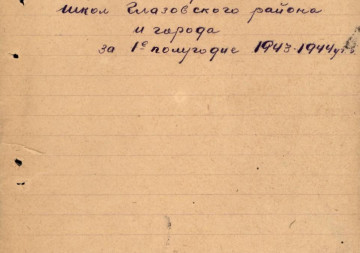 школ Глазовского района
и города
за 1е полугодие 1943-1944 уч. г.